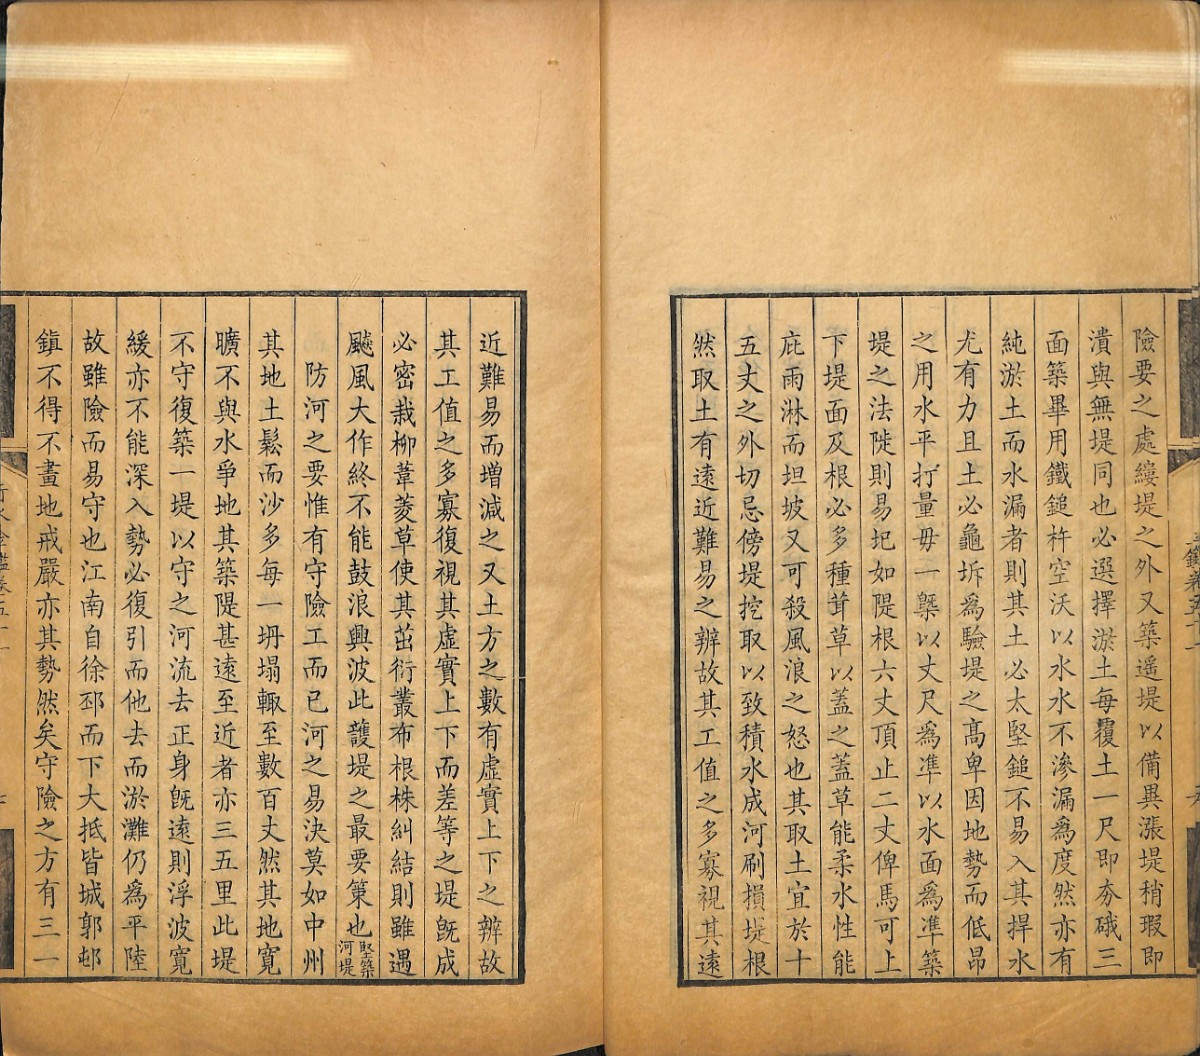 險要之處縷堤之外又築遥堤以備異漲堤稍瑕即
潰與無堤同也必選擇淤土每覆土一尺即夯硪三
面築畢用鐵鎚杵空沃以水水不滲漏為度然亦有
純淤土而水漏者則其土必太堅鎚不易入其捍水
尤有力且土必龜坼為驗堤之高卑因地勢而低昂
之用水平打量毋一槩以丈尺為准以水面為準築
堤之法陡則易圮如隄根六丈頂止二丈俾馬可上
下堤面及根必多種茸草以蓋之蓋草能柔水性能
庇雨淋而坦坡又可殺風浪之怒也其取土宜於十
五丈之外切忌傍堤挖取以致積水成河刷損堤根
然取土有遠近難易之辨故其工值之多寡視其遠
近難易而增減之又土方之數有虛實上下之辨故
其工值之多寡復視其虛實上下而差等之堤旣成
必密栽柳葦菱草使其茁衍叢布根株糾結則雖遇
颷風大作終不能鼓浪興波此護堤之最要策也堅築
河堤
防河之要惟有守險工而已河之易決莫如中州
其地土鬆而沙多每一坍塌輙至數百丈然其地寬
曠不與水爭地其築隄甚遠至近者亦三五里此堤
不守復築一堤以守之河流去正身旣遠則浮波寬
緩亦不能深入勢必復引而他去而淤灘仍為平陸
故雖險而易守也江南自徐邳而下大抵皆城郭邨
鎮不得不畫地戒嚴亦其勢然矣守險之方有三一